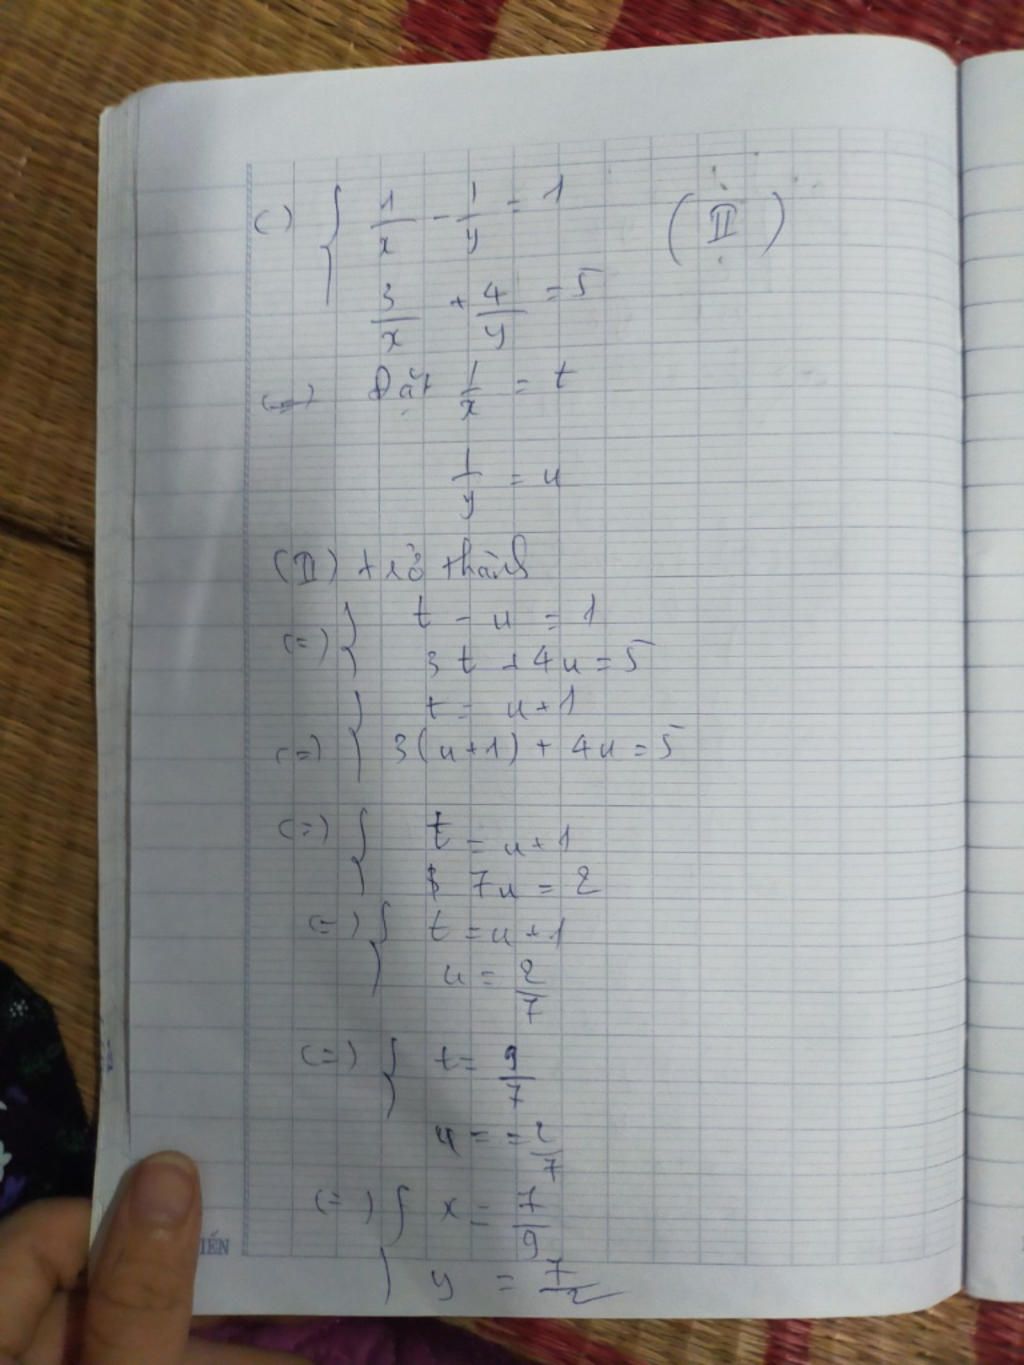 c) { 1/x - 1/y = 1 (II)
3/x + 4/y = 5
(=) Đặt 1/x = t
1/y = u
(II) trở thành
(=) { t - u = 1
3t + 4u = 5
{ t = u + 1
(=) 3(u+1) + 4u = 5
(=) { t = u + 1
7u = 2
(=) { t = u + 1
u = 2/7
(=) { t = 9/7
u = = 2/7
(=) { x = 7/9
y = 7/2
IẾN